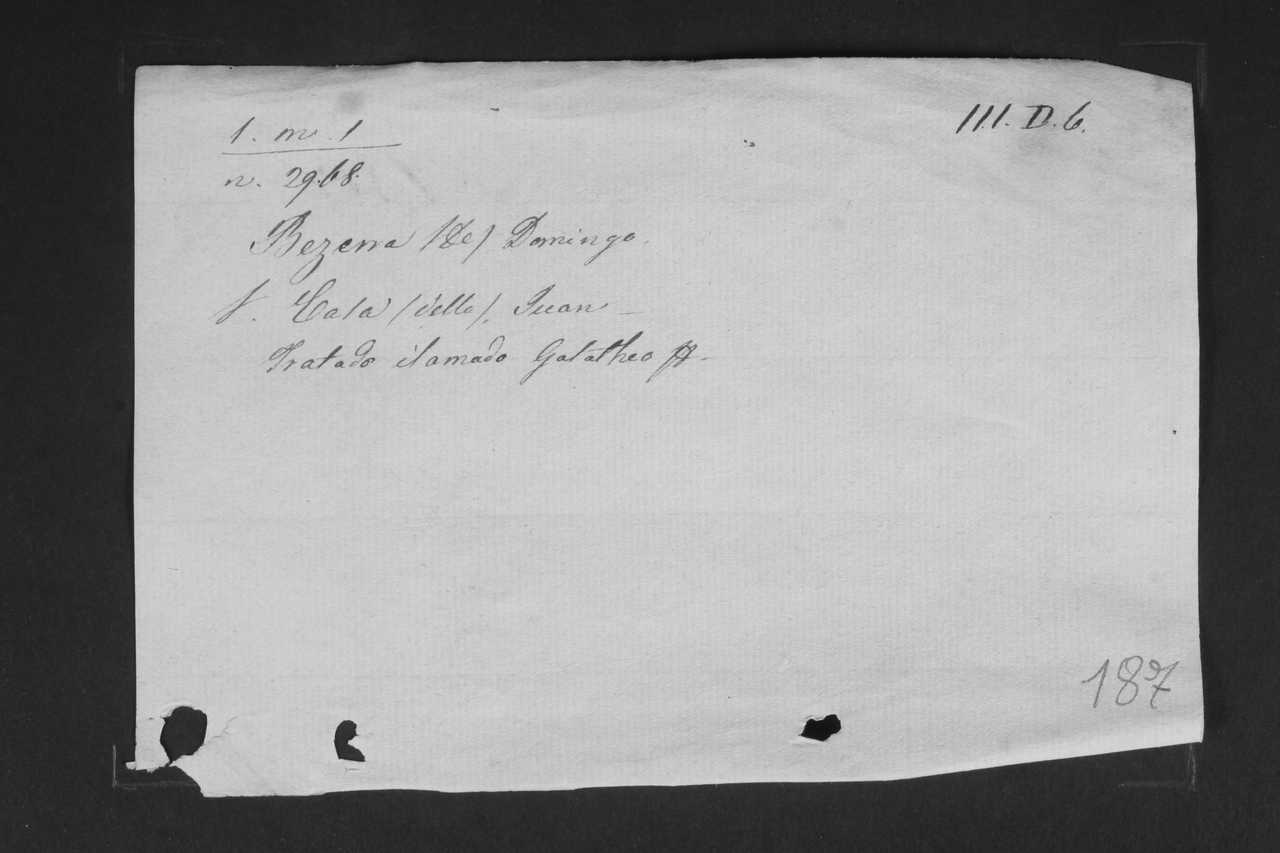 III. D. 6.
1. m. 1
n. 29.68.
Bezerra /de/ Domingo.
V. Casa /della/. Juan
Tratado ilamado Galatheo
187